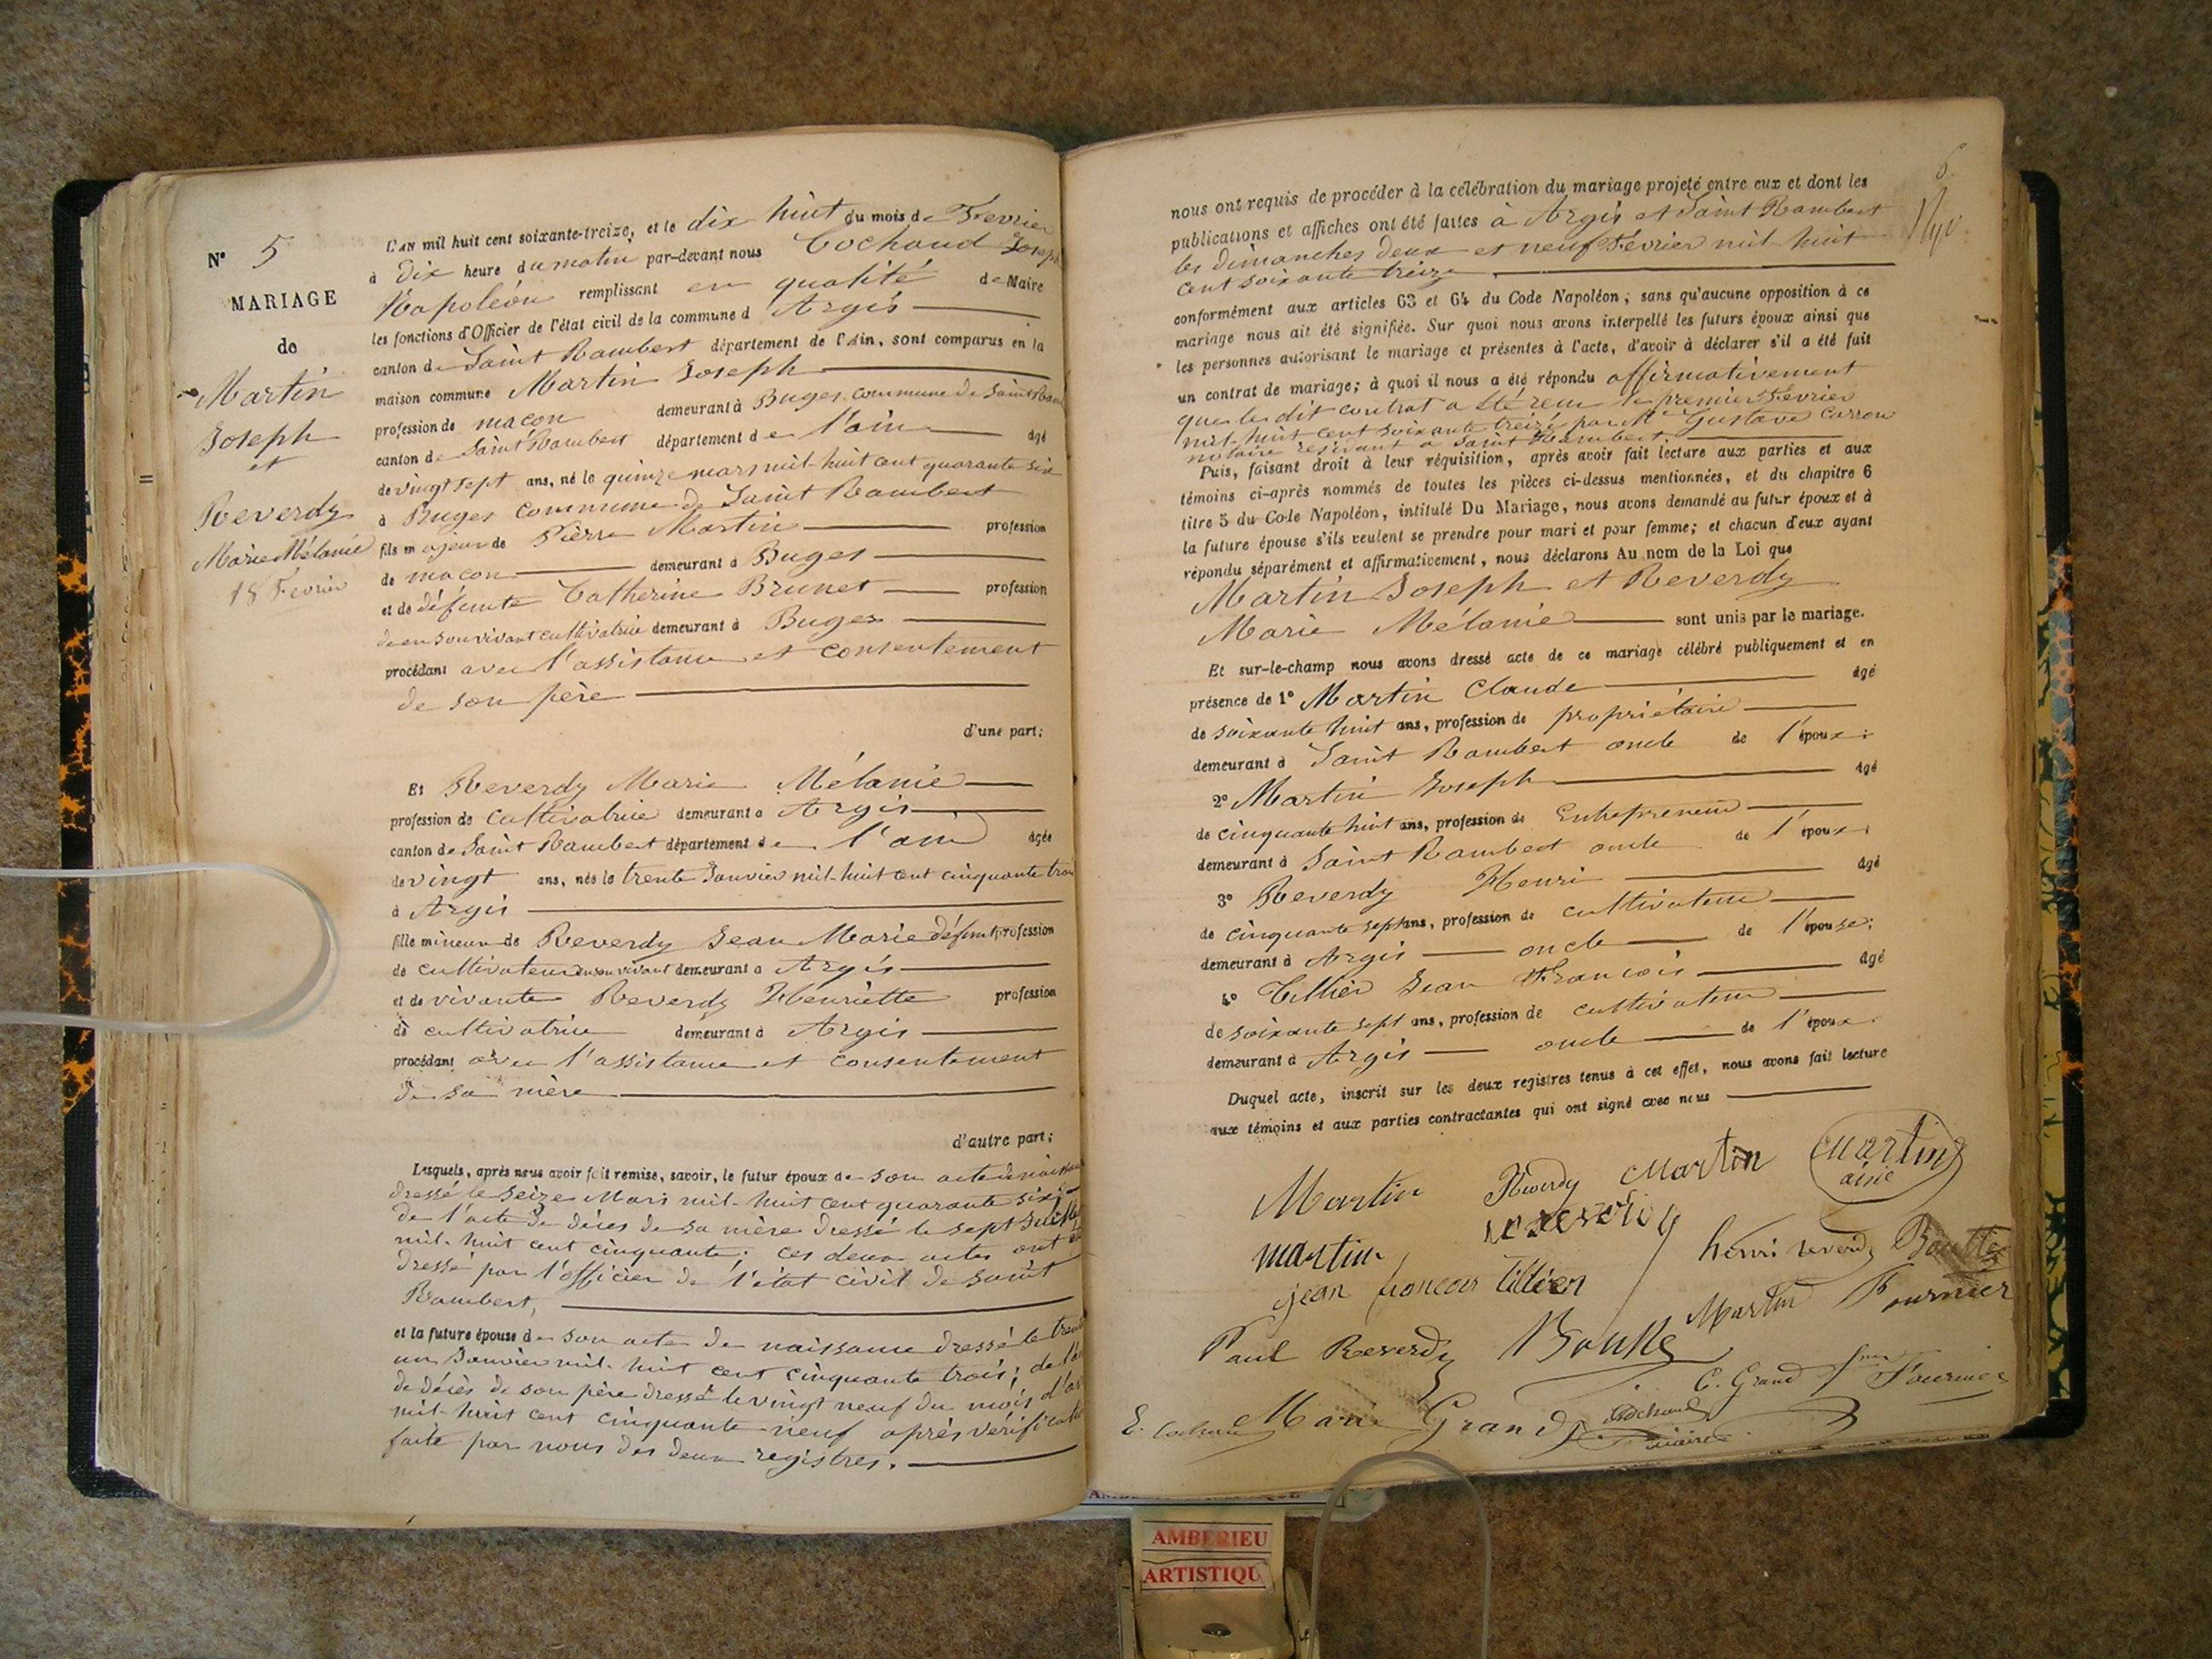 N° 5
MARIAGE
de
Martin
Joseph
et
Reverdy
Marie Mélanie
18 Fevrier
L'AN mil huit cent soixante-treize, et le dix huit du mois de Fevrier
à Dix heure du matin par-devant nous Cochoud Joseph
Napoléon remplissant en qualité de Maire
les fonctions d'Officier de l'état civil de la commune d Argis
canton de Saint Rambert département de l'Ain, sont comparus en la
maison commune Martin Joseph
profession de maçon demeurant à Buges commune de Saint
canton de Saint Rambert département de l'ain âgé
de vingt sept ans, né le quinze mars mil huit cent quarante six
à Buges commune de Saint Rambert
fils majeur de Pierre Martin profession
de maçon demeurant à Buges
et de défunte Catherine Brunet profession
de en son vivant cultivatrice demeurant à Buges
procédant avec l'assistance et consentement
de son père
d'une part;
Et Reverdy Marie Mélanie
profession de cultivatrice demeurant a Argis
canton de Saint Rambert département de l'ain âgée
de vingt ans, née le trente Janvier mil huit cent cinquante trois
à Argis
fille mineure de Reverdy Jean Marie défunt profession
de cultivateur en son vivant demeurant a Argis
et de vivante Reverdy Henriette profession
de cultivatrice demeurant à Argis
procédant avec l'assistance et consentement
de sa mère
d'autre part;
Lesquels, après nous avoir fait remise, savoir, le futur époux de son acte de
dressé le seize Mars mil huit cent quarante six
de l'acte de décès de sa mère dressé le sept
mil huit cent cinquante; ces deux actes ont
dressé par l'officier de l'état civil de saint
Rambert,
et la future épouse de son acte de naissance dressé le
un Janvier mil huit cent cinquante trois; de
de décès de son père dressé le vingt neuf du mois
mil huit cent cinquante neuf après
faite par nous des deux registres.
6
nous ont requis de procéder à la célébration du mariage projeté entre eux et dont les
publications et affiches ont été faites à Argis et Saint Rambert
les dimanches deux et neuf Février mil huit
cent soixante treize
conformément aux articles 63 et 64 du Code Napoléon, sans qu'aucune opposition à ce
mariage nous ait été signifiée. Sur quoi nous avons interpellé les futurs époux ainsi que
les personnes autorisant le mariage et présentes à l'acte, d'avoir à déclarer s'il a été fait
un contrat de mariage; à quoi il nous a été répondu affirmativement
que le dit contrat a été reçu le premier Fevrier
mil huit cent soixante treize par Me Gustave Carron
notaire résidant à Saint Rambert.
Puis, faisant droit à leur réquisition, après avoir fait lecture aux parties et aux
témoins ci-après nommés de toutes les pièces ci-dessus mentionnées, et du chapitre 6
titre 5 du Code Napoléon, intitulé Du Mariage, nous avons demandé au futur époux et à
la future épouse s'ils veulent se prendre pour mari et pour femme; et chacun d'eux ayant
répondu séparément et affirmativement, nous déclarons Au nom de la Loi que
Martin Joseph et Reverdy
Marie Mélanie sont unis par le mariage.
Et sur-le-champ nous avons dressé acte de ce mariage célébré publiquement et en
présence de 1° Martin Claude âgé
de soixante huit ans, profession de propriétaire
demeurant à Saint Rambert oncle de l'époux:
2° Martin Joseph âgé
de cinquante huit ans, profession de Entrepreneur
demeurant à Saint Rambert oncle de l'époux:
3° Reverdy Henri âgé
de cinquante sept ans, profession de cultivateur
demeurant à Argis oncle de l'épouse:
4° Tillier Jean François âgé
de soixante sept ans, profession de cultivateur
demeurant à Argis oncle de l'époux.
Duquel acte, inscrit sur les deux registres tenus à cet effet, nous avons fait lecture
aux témoins et aux parties contractantes qui ont signé avec nous
Martin Reverdy Martin Martin
ainé
martin reverdy henri reverdy
jean francois tillier Martin Fournier
Paul Reverdy Boutte
C. Grand Fournier
Marie Grand
maire
AMBERIEU
ARTISTIQU